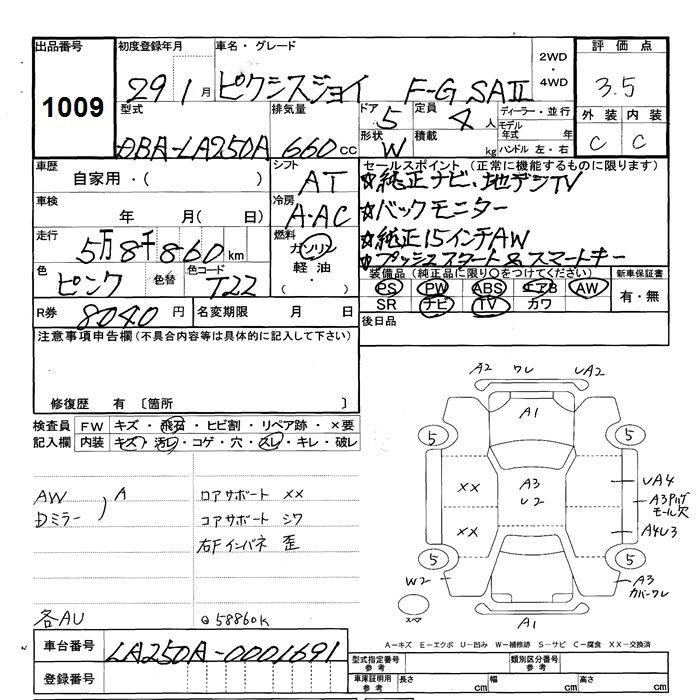 出品番号
1009
初度登録年月
29 1月
車名・グレード
ピクシスジョイ F-G SAⅡ
2WD
・
4WD
評価点
3.5
外装 内装
C C
型式
DBA-LA250A
排気量
660cc
ドア
5
定員
4人
形状
W
積載
kg
ディーラー・並行
モデル年式 年
ハンドル 左・右
車歴
自家用・( )
シフト
AT
車検
年 月( 日)
冷房
A・AC
走行
5万8千860km
燃料
ガソリン
軽油・
( ・ )
色
ピンク
色替
色コード
T22
R券
8040円
名変期限 月 日
セールスポイント(正常に機能するものに限ります)
☆純正ナビ、地デジTV
☆バックモニター
☆純正15インチAW
☆プッシュスタート&スマートキー
装備品(純正品に限り〇をつけてください)
PS PW ABS エアB AW
SR ナビ TV カワ
新車保証書
有・無
後日品
注意事項申告欄(不具合内容等は具体的に記入して下さい)
修復歴 有 〔箇所 〕
検査員記入欄
FW キズ・飛石・ヒビ割・リペア跡・×要
内装 キズ・汚レ・コゲ・穴・スレ・キレ・破レ
AW
Dミラー
) A
ロアサポート ××
コアサポート シワ
右Fインパネ 歪
各AU
@58860K
A2 ワレ UA2
A1
5 5
×× A3 U2 UA4
A3Pバグ
モール穴
×× A4U3
5 5
W2 A3
カバーワレ
スペア
A1
A−キズ E−エクボ U−凹み W−補修跡 S−サビ C−腐食 XX−交換済
車台番号
LA250A-0001691
登録番号
型式指定番号
参考
類別区分番号
参考
車庫証明用
参考
長さ cm 幅 cm 高さ cm